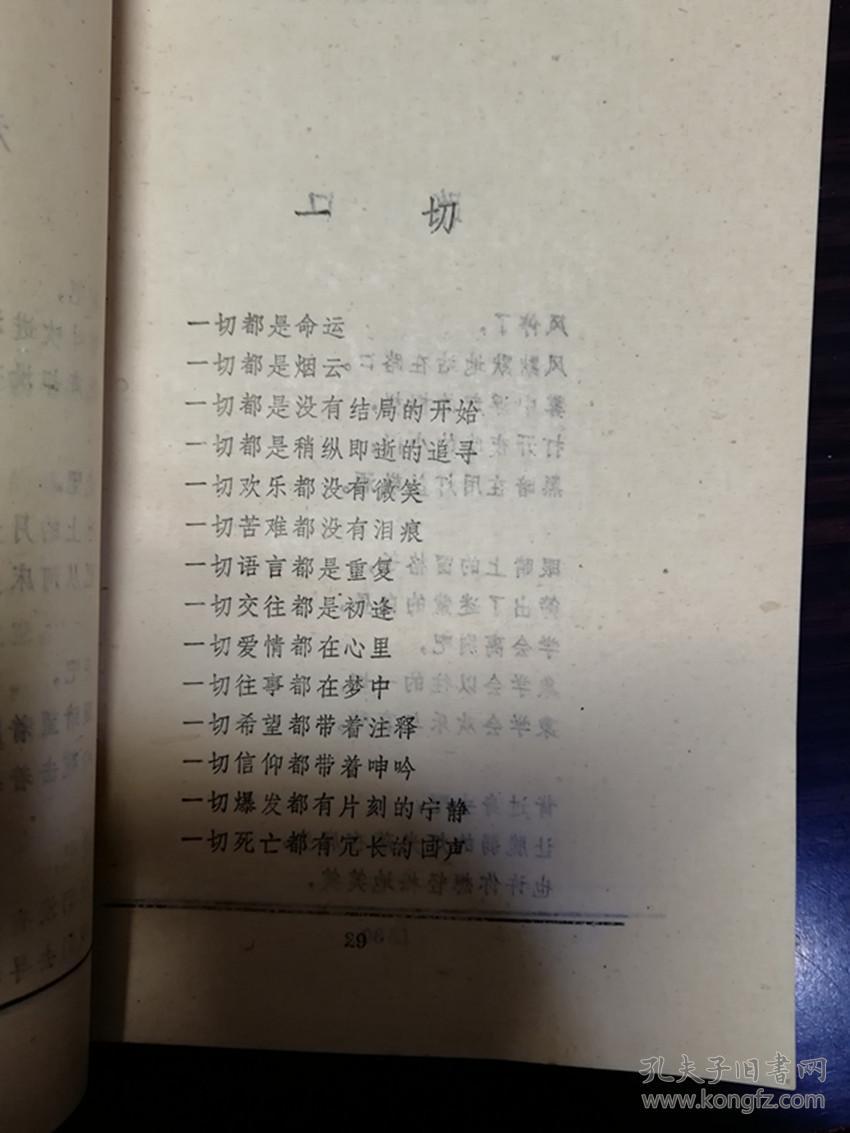 一切
一切都是命运
一切都是烟云
一切都是没有结局的开始
一切都是稍纵即逝的追寻
一切欢乐都没有微笑
一切苦难都没有泪痕
一切语言都是重复
一切交往都是初逢
一切爱情都在心里
一切往事都在梦中
一切希望都带着注释
一切信仰都带着呻吟
一切爆发都有片刻的宁静
一切死亡都有冗长的回声
29
孔夫子旧书网
www.kongfz.com